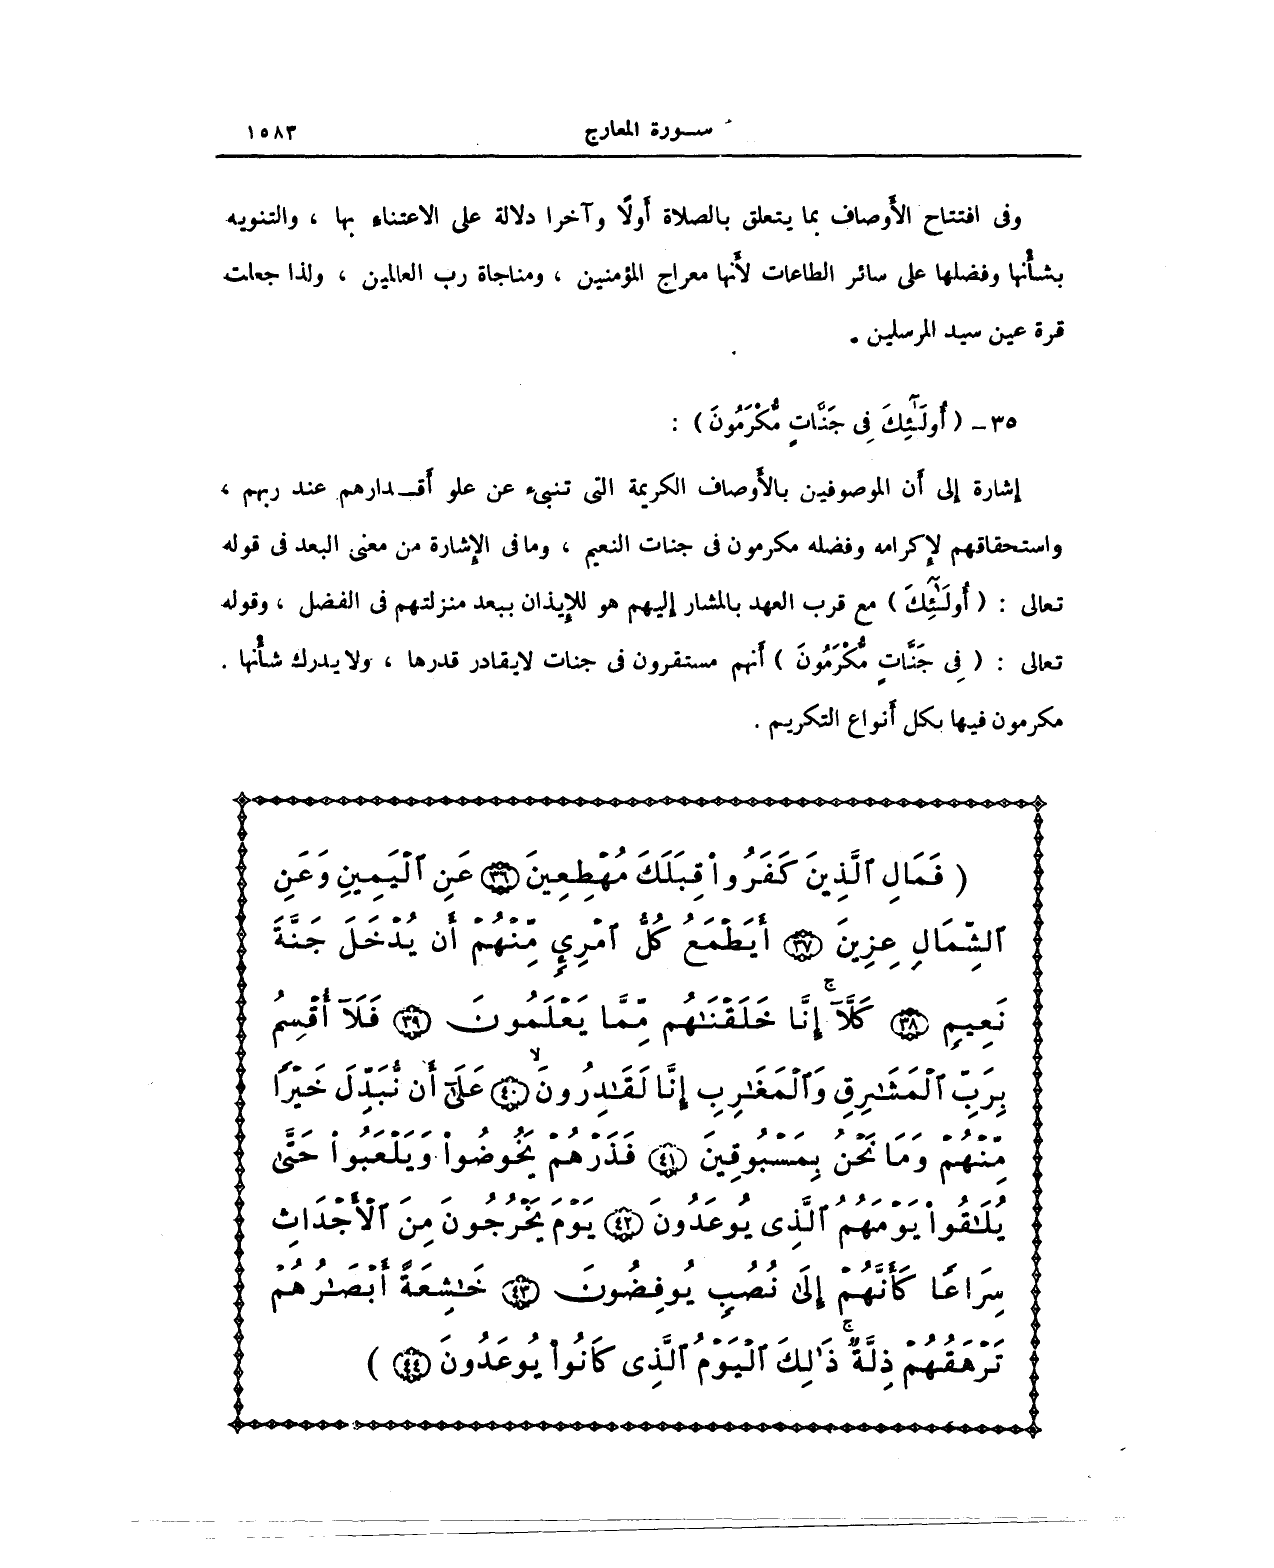 سورة المعارج ١٥٨٣
وفى افتتاح الأوصاف بما يتعلق بالصلاة أولًا وآخرا دلالة على الاعتناء بها ، والتنويه
بشأنها وفضلها على سائر الطاعات لأنها معراج المؤمنين ، ومناجاة رب العالمين ، ولذا جعلت
قرة عين سيد المرسلين .
٣٥ـ ( أُولَٰٓئِكَ فِى جَنَّاتٍ مُّكْرَمُونَ ) :
إشارة إلى أن الموصوفين بالأوصاف الكريمة التى تنبىء عن علو أقـدارهم عند ربهم ،
واستحقاقهم لإكرامه وفضله مكرمون فى جنات النعيم ، وما فى الإشارة من معنى البعد فى قوله
تعالى : ( أُولَٰٓئِكَ ) مع قرب العهد بالمشار إليهم هو للإيذان ببعد منزلتهم فى الفضل ، وقوله
تعالى : ( فِى جَنَّاتٍ مُّكْرَمُونَ ) أنهم مستقرون فى جنات لايقادر قدرها ، ولا يدرك شأنها .
مكرمون فيها بكل أنواع التكريم .
( فَمَالِ ٱلَّذِينَ كَفَرُوا۟ قِبَلَكَ مُهْطِعِينَ ٣٦ عَنِ ٱلْيَمِينِ وَعَنِ
ٱلشِّمَالِ عِزِينَ ٣٧ أَيَطْمَعُ كُلُّ ٱمْرِئٍ مِّنْهُمْ أَن يُدْخَلَ جَنَّةَ
نَعِيمٍ ٣٨ كَلَّآ ۖ إِنَّا خَلَقْنَٰهُم مِّمَّا يَعْلَمُونَ ٣٩ فَلَآ أُقْسِمُ
بِرَبِّ ٱلْمَشَٰرِقِ وَٱلْمَغَٰرِبِ إِنَّا لَقَٰدِرُونَ ٤٠ عَلَىٰٓ أَن نُّبَدِّلَ خَيْرًا
مِّنْهُمْ وَمَا نَحْنُ بِمَسْبُوقِينَ ٤١ فَذَرْهُمْ يَخُوضُوا۟ وَيَلْعَبُوا۟ حَتَّىٰ
يُلَٰقُوا۟ يَوْمَهُمُ ٱلَّذِى يُوعَدُونَ ٤٢ يَوْمَ يَخْرُجُونَ مِنَ ٱلْأَجْدَاثِ
سِرَاعًا كَأَنَّهُمْ إِلَىٰ نُصُبٍ يُوفِضُونَ ٤٣ خَٰشِعَةً أَبْصَٰرُهُمْ
تَرْهَقُهُمْ ذِلَّةٌ ۚ ذَٰلِكَ ٱلْيَوْمُ ٱلَّذِى كَانُوا۟ يُوعَدُونَ ٤٤ )